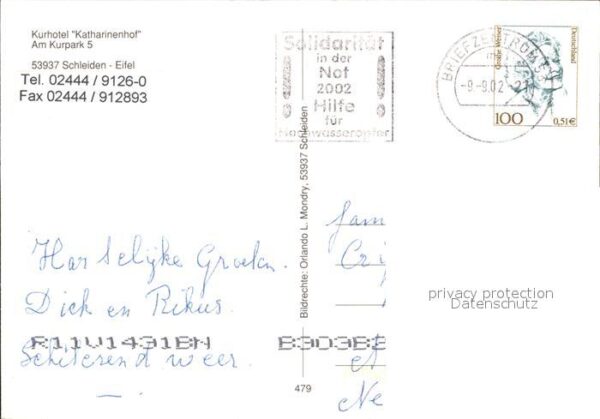 Kurhotel "Katharinenhof"
Am Kurpark 5
53937 Schleiden - Eifel
Tel. 02444 / 9126-0
Fax 02444 / 912893
Solidarität
in der
Not
2002
Hilfe
für
Hochwasseropfer
BRIEFZENTRUM
-9.-9.02-21
Deutschland
100
0,51€
Bildrechte: Orlando L. Mondry, 53937 Schleiden
479
Hartelijke Groeten.
Dick en Rikus.
Schitterend weer.
R11V1431BN
B303B2
fam
Cri
Ne
privacy protection
Datenschutz